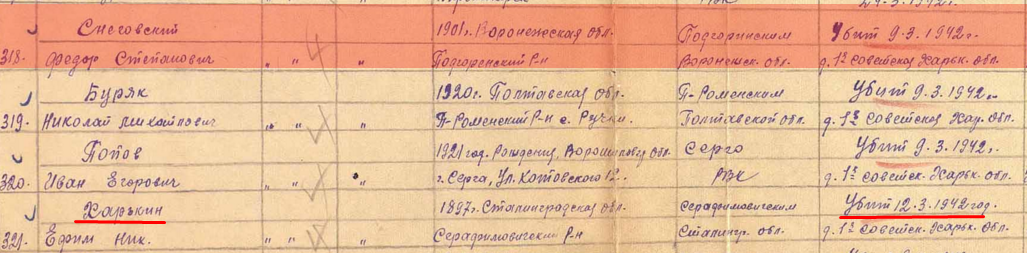 24.3.1942г.
Снеговский 1901г. Воронежская обл. Подгоринским Убит 9.3.1942г.
318. Федор Степанович " " 4 " Подгоренский Р-н Воронежск. обл. д. 1ª Советск. Харьк. обл.
Буряк 1920г. Полтавская обл. П-Роменским Убит 9.3.1942г.
319. Николай Михайлович " " " П-Роменский Р-н с. Полтавской обл. д. 1ª Советская Хар. обл.
Попов 1921 год. Рождения, Ворошиловгр. обл. Серго Убит 9.3.1942г.
320. Иван Егорович " " " г. Серго, Ул. Котовского 12. РВК д. 1ª Советск. Харьк. обл.
Харькин 1897г. Сталинградская обл. Серафимовическим Убит 12.3.1942 год.
321. Ефим Ник. " " " Серафимовический Р-н Сталингр. обл. д. 1ª Советск. Харьк. обл.